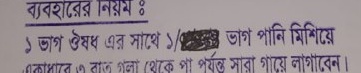 ব্যবহারের নিয়ম ঃ
১ ভাগ ঔষধ এর সাথে ১/ ভাগ পানি মিশিয়ে
রাত গলা থেকে পা পর্যন্ত সারা গায়ে লাগাবেন।